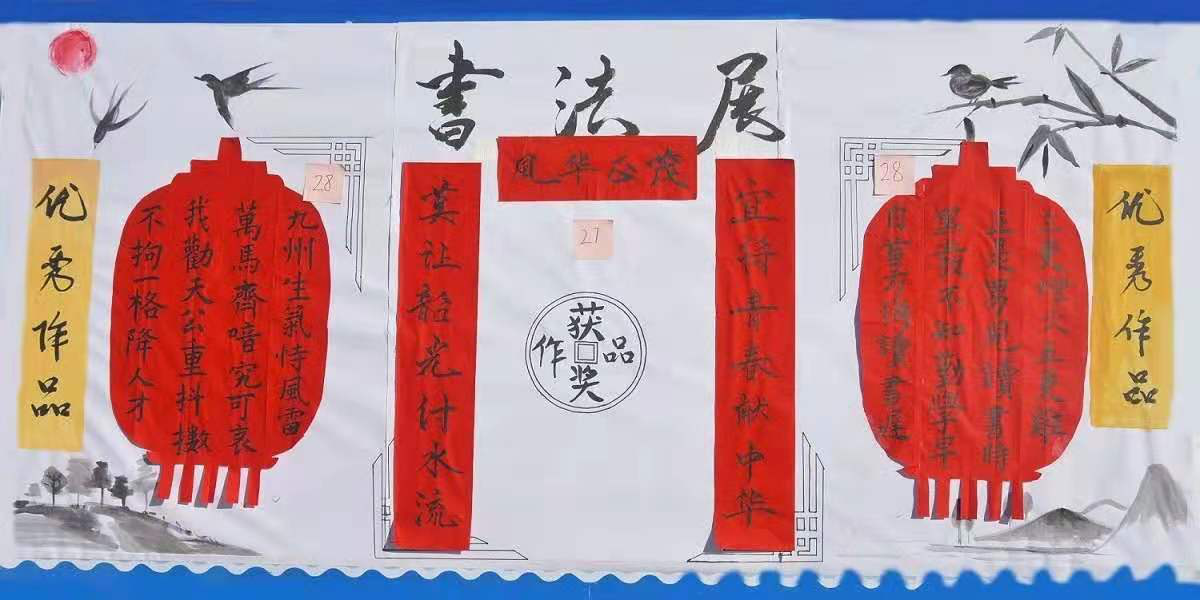 書法展
风华正茂
优秀作品
28
九州生氣恃風雷
萬馬齊喑究可哀
我勸天公重抖擻
不拘一格降人才
莫让韶光付水流
27
获奖作品
宜将青春献中华
28
三更燈火五更雞
正是男兒讀書時
黑發不知勤學早
白首方悔讀書遲
优秀作品